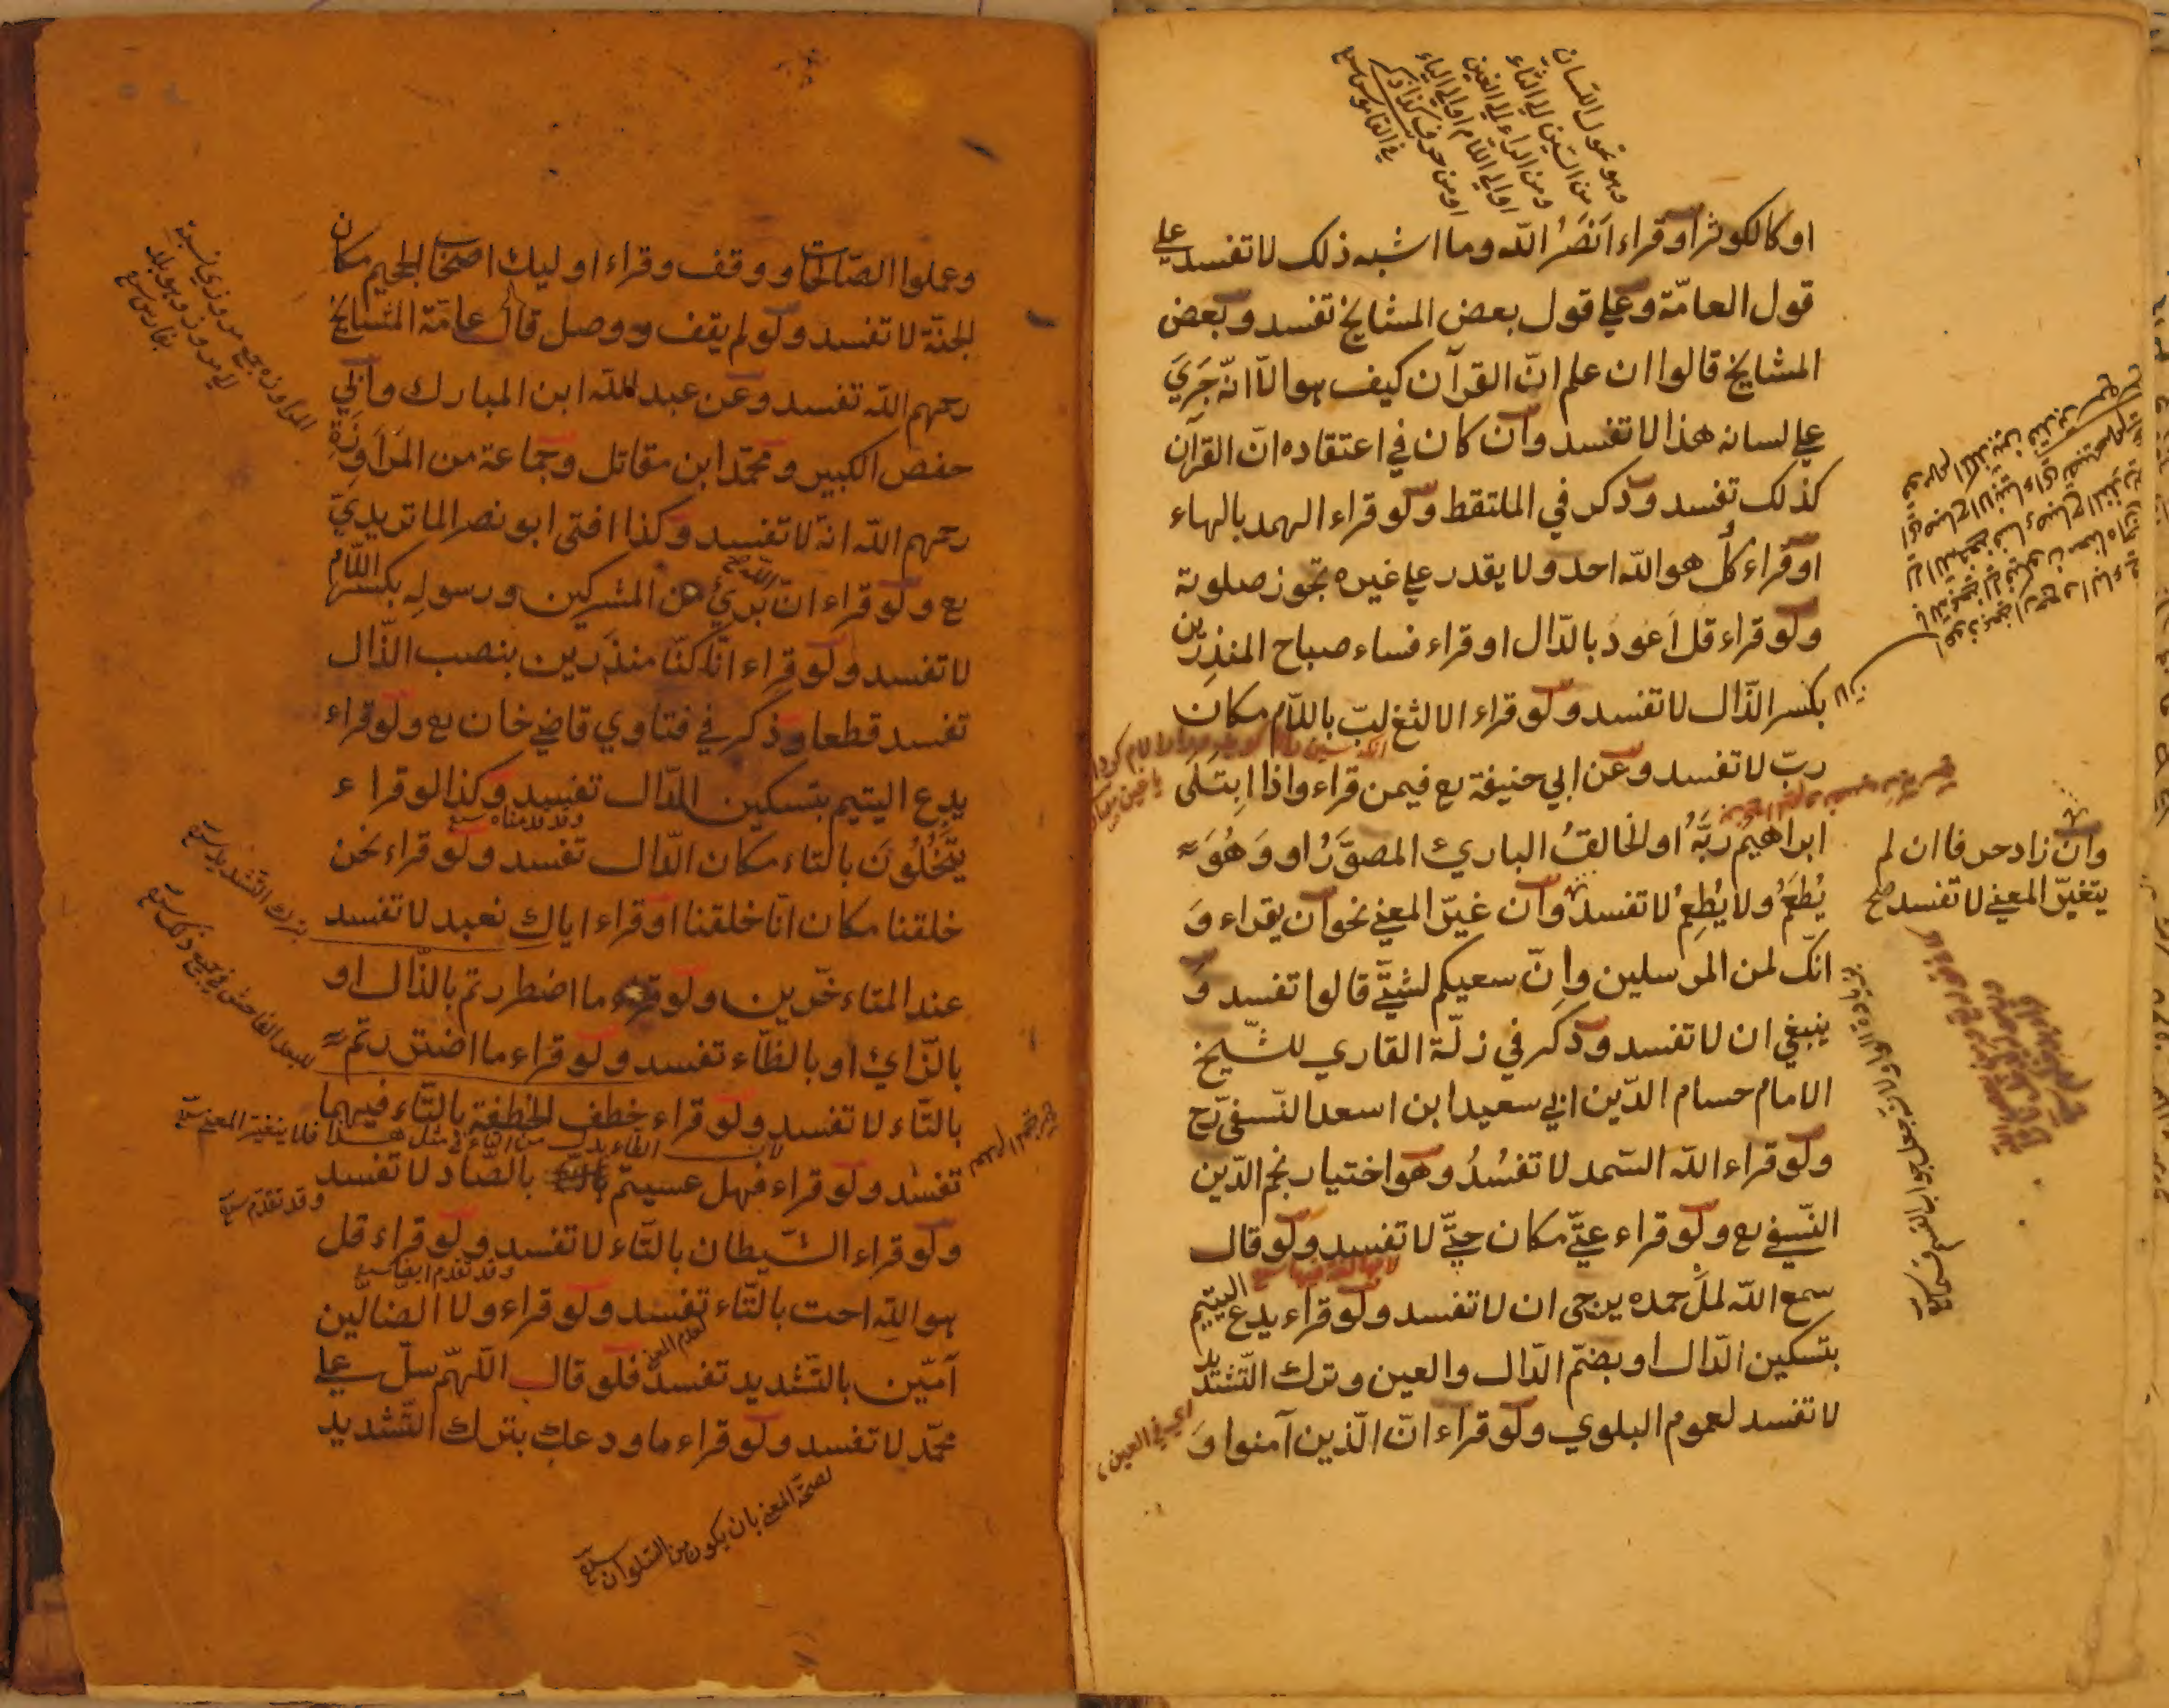 وهو تحول اللسان
من السين الي الثاء
ومن الراء الي الغين
او الي اللام او الي الياء
او من حرف كذا ذكر
في القاموس
او كالكوثر او قراء انصر الله وما اشبه ذلك لا تفسد علي
قول العامّة وعلي قول بعض المشايخ تفسد وبعض
المشايخ قالوا ان علم انّ القرآن كيف هو الاّ انّه جَرَيَ
علي لسانه هذا لا تفسد وان كان في اعتقاده انّ القرآن
كذلك تفسد وذكر في الملتقط ولو قراء الهمد بالهاء
او قراء كُل هو الله احد ولا يقدر علي غيره تجوز صلوته
ولو قراء قل اَعود بالدّال او قراء فساء صباح المنذِرين
بكسر الذّال لا تفسد ولو قراء الالثغ لبّ باللّام مكان
ربّ لا تفسد وعن ابي حنيفة رع فيمن قراء واذا ابتَلَى
ابراهيمُ ربَّهُ او الخالقُ الباريُ المصوَّرُ او وَهُوَ
يُطعَمُ ولا يُطعِمُ لا تفسد وان غيّر المعني نحو ان يقراء وَ
انّك لمن المرسلين واِنّ سعيكم لشتّي قالوا تفسد وَ
ينبغي ان لا تفسد وذكر في زلّة القاري للشّيخ
الامام حسام الدّين ابي سعيد ابن اسعد النّسفي رح
ولو قراء الله السّمد لا تفسُدُ وهو اختيار نجم الدّين
النّسفي رع ولو قراء عتّي مكان حتّي لا تفسد ولو قال
سمع الله لمَل حمده يرجي ان لا تفسد ولو قراء يدع اليتيم
بتسكين الدّال او بضمّ الدّال والعين وترك التّشديد
لا تفسد لعموم البلوي ولو قراء انّ الّذين آمنوا وَ
وان زاد حرفا ان لم
يتغيّر المعني لا تفسد صح
اي في العين
وعملوا الصّالحات ووقف وقراء اوليك اصحاب الجحيم مكان
الجنّة لا تفسد ولو لم يقف ووصل قال عامّة المشايخ
رحمهم الله تفسد وعن عبد الله ابن المبارك وابي
حفص الكبير ومحمّد ابن مقاتل وجماعة من المَراوِزَةِ
رحمهم الله انّه لا تفسد وكذا افتي ابو نصر الماتريديّ
رع ولو قراء انّ الله بريئ من المشركين ورسولِه بكسر اللّام
لا تفسد ولو قراء انّا كنّا منذَرين بنصب الذّال
تفسد قطعا وذكر في فتاوي قاضي خان رع ولو قراء
يدع اليتيم بتسكين الدّال تفسد وكذا لو قراء
وقد قدمناه
يتَخُلُونَ بالتاء مكان الدّال تفسد ولو قراء نحن
خلقنا مكان انّا خلقنا او قراء اياك نعبد لا تفسد
عند المتاءخّرين ولو قراء ما اضطررتم بالذّال او
بالزّاي او بالظّاء تفسد ولو قراء ما اضتررتم
بالتّاء لا تفسد ولو قراء خطف الخطفة بالتّاء فيهما
لان الطاء بدل من التاء في مثل هذا فلا يتغير المعني
تفسد ولو قراء فهل عسيتم بالصّاد لا تفسد
وقد تقدم
ولو قراء الشّيطان بالتّاء لا تفسد ولو قراء قل
وقد تقدم ايضا
هو الله احت بالتّاء تفسد ولو قراء ولا الضالّين
لعدم المعني
آمّين بالتّشديد تفسد فلو قال اللّهمّ سلّ علي
محمّد لا تفسد ولو قراء ما ودعك بترك التّشديد
لصحّة المعني بان يكون من السّلوان
المراوزه جمع مروزي نسبة
الي مرو وهو بلد
بفارس
بترك التشديد
للبعد الفاحش في جميع ذلك